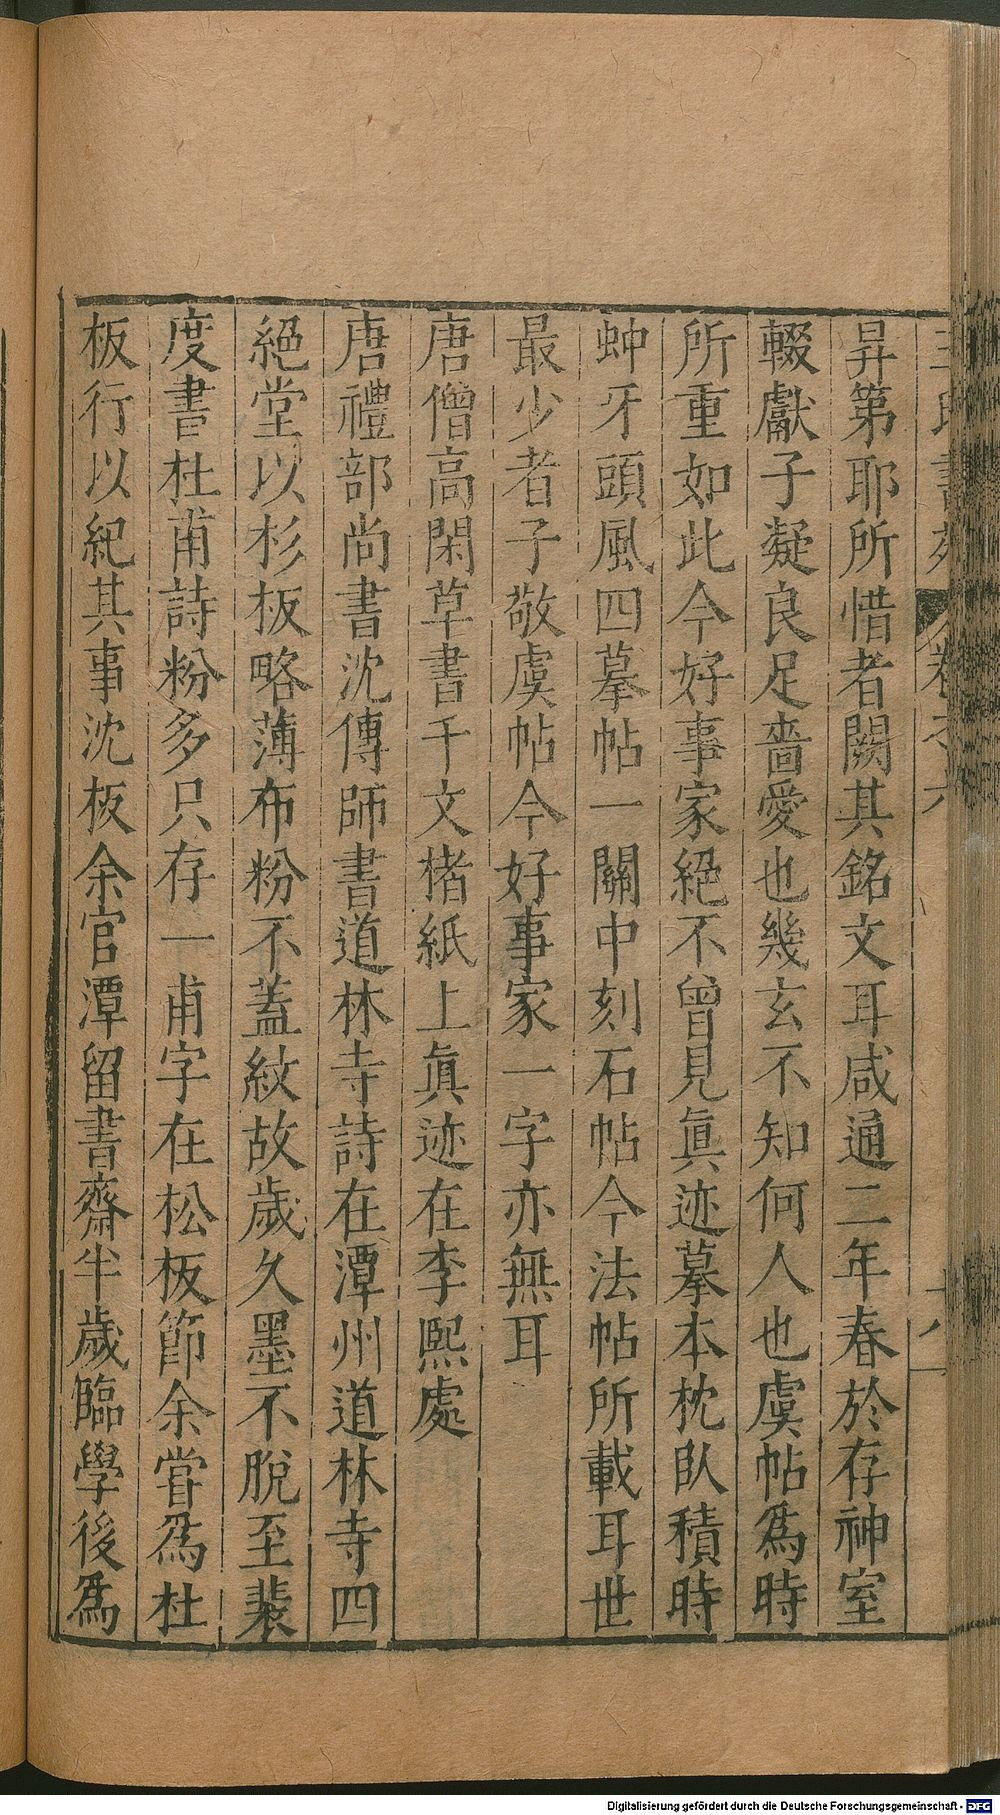 王氏書苑 卷之六
昇第耶所惜者闕其銘文耳咸通二年春於存神室
輟獻子凝良足嗇愛也幾玄不知何人也虞帖為時
所重如此今好事家絕不曾見眞迹摹本枕臥積時
蚛牙頭風四摹帖一關中刻石帖今法帖所載耳世
最少者子敬虞帖今好事家一字亦無耳
唐僧高閑草書千文楮紙上眞迹在李熙處
唐禮部尚書沈傳師書道林寺詩在潭州道林寺四
絕堂以杉板略薄布粉不蓋紋故歲久墨不脫至裴
度書杜甫詩粉多只存一甫字在松板節余嘗為杜
板行以紀其事沈板余官潭留書齋半歲臨學後為
Digitalisierung gefördert durch die Deutsche Forschungsgemeinschaft - DFG